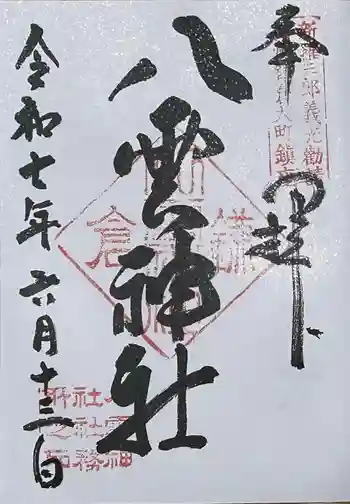 奉
新羅三郎義光勧請
鎌倉大町鎮座
八雲神社
鎌倉
八雲神
社社務
所之印
令和七年六月十三日